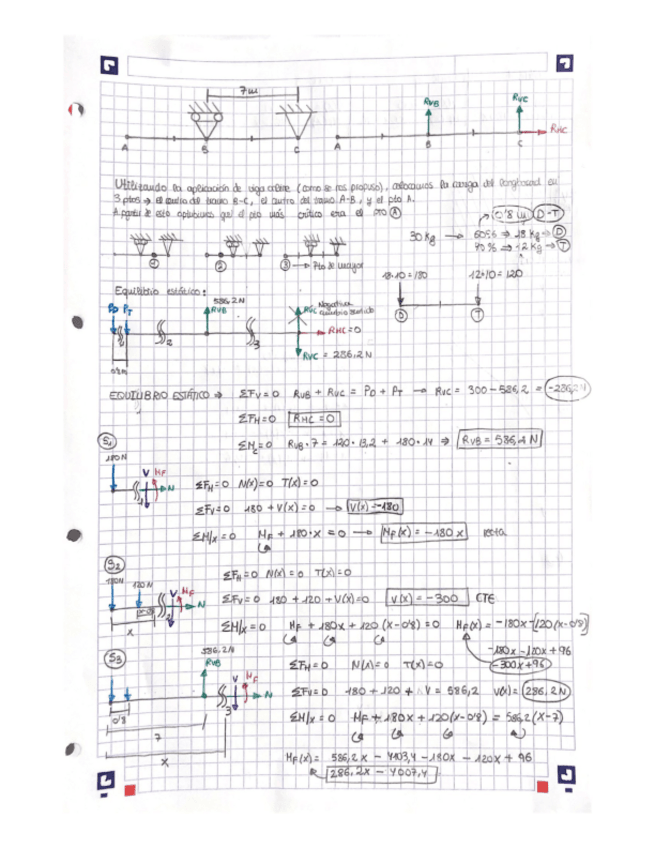 7m
RVB
RVC
RHC
A
B
C
A
B
C
Utilizando la aplicación de viga online (como se nos propuso), colocamos la carga del longboard en
3 ptos → el centro del tramo B-C, el centro del tramo A-B, y el pto A.
A partir de esto que el pto más crítico era el pto A
0'8 m D-T
30 kg → 60% ⇒ 18 kg → D
40% ⇒ 12 kg → T
1
2
3 → Pto de mayor
18·10 = 180
12·10 = 120
D
T
Equilibrio estático:
PD PT
586,2 N
RVB
RVC Negativa cambio sentido
RHC = 0
RVC = 286,2 N
2
3
0'8m
EQUILIBRIO ESTÁTICO ⇒ ΣFV = 0 RVB + RVC = PD + PT → RVC = 300 - 586,2 = -286,2 N
ΣFH = 0 RHC = 0
ΣMC = 0 RVB · 7 = 120 · 13,2 + 180 · 14 ⇒ RVB = 586,2 N
S1
180N
V MF N
1
ΣFH = 0 N(x) = 0 T(x) = 0
ΣFV = 0 180 + V(x) = 0 → V(x) = -180
ΣM/x = 0 MF + 180·x = 0 → MF(x) = -180x recta
S2
180N
120N
V MF N
x
ΣFH = 0 N(x) = 0 T(x) = 0
ΣFV = 0 180 + 120 + V(x) = 0 V(x) = -300 CTE
ΣM/x = 0 MF + 180x + 120(x-0'8) = 0 MF(x) = -180x - [120(x-0'8)]
-180x - 120x + 96
-300x + 96
S3
586,2N
RVB
V MF N
3
0'8
7
x
ΣFH = 0 N(x) = 0 T(x) = 0
ΣFV = 0 180 + 120 + V = 586,2 V(x) = 286,2 N
ΣM/x = 0 MF + 180x + 120(x-0'8) = 586,2(x-7)
MF(x) = 586,2x - 4103,4 - 180x - 120x + 96
286,2x - 4007,4